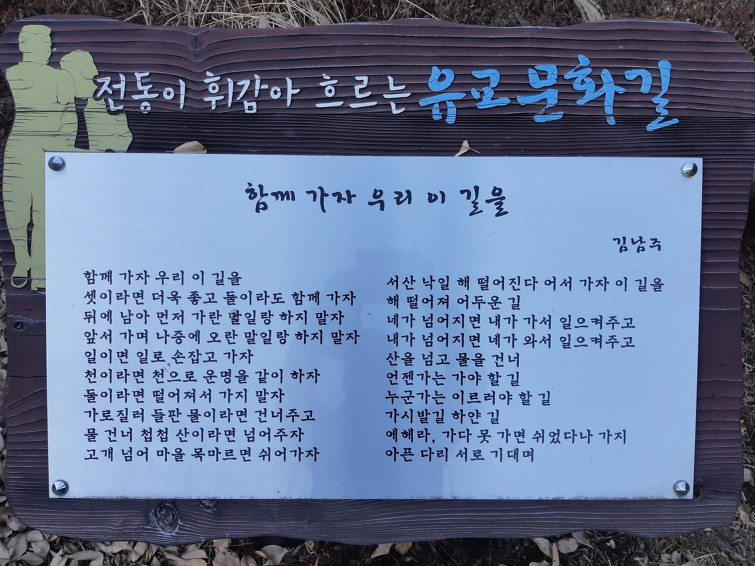 전통이 휘감아 흐르는 유교문화길
함께 가자 우리 이 길을
김남주
함께 가자 우리 이 길을
셋이라면 더욱 좋고 둘이라도 함께 가자
뒤에 남아 먼저 가란 말일랑 하지 말자
앞서 가며 나중에 오란 말일랑 하지 말자
일이면 일로 손잡고 가자
천이라면 천으로 운명을 같이 하자
둘이라면 떨어져서 가지 말자
가로질러 들판 물이라면 건너주고
물 건너 첩첩 산이라면 넘어주자
고개 넘어 마을 목마르면 쉬어가자
서산 낙일 해 떨어진다 어서 가자 이 길을
해 떨어져 어두운 길
네가 넘어지면 내가 가서 일으켜주고
내가 넘어지면 네가 와서 일으켜주고
산을 넘고 물을 건너
언젠가는 가야 할 길
누군가는 이르러야 할 길
가시발길 하얀 길
에헤라, 가다 못 가면 쉬었다나 가지
아픈 다리 서로 기대며